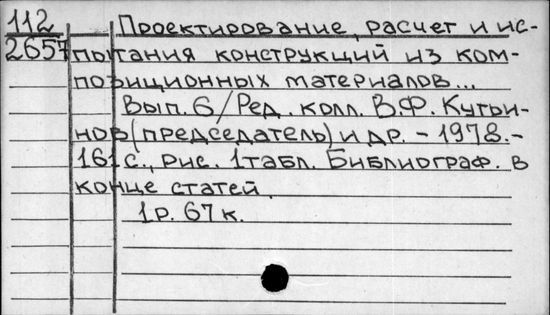 112 Проектирование, расчет и ис-
2657 пытания конструкций из ком-
позиционных материалов...
Вып. 6/Ред. колл. В.Ф. Кутьи-
нов (председатель) и др. - 1978.-
161 с., рис. 1табл. Библиограф. в
конце статей.
1р. 67 к.